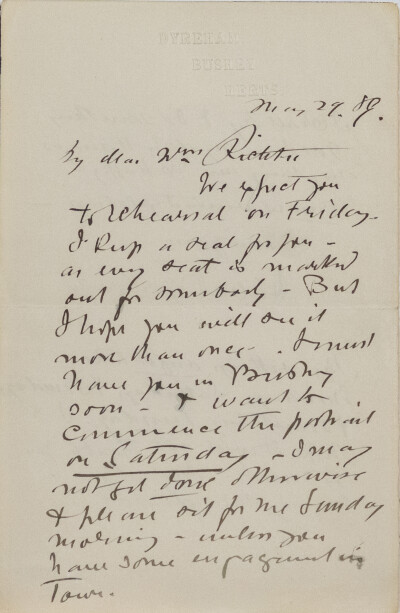 DYREHAM
BUSHEY
HERTS.
May 29. 89.
My dear Wm Richter
We expect you
to rehearsal on Friday.
I keep a seat for you -
as every seat is marked
out for somebody - But
I hope you will see it
more than once - I must
have you in Bushey
soon - & want to
commence the portrait
on Saturday - I may
not get done otherwise
& please sit for me Sunday
morning - unless you
have some engagement in
Town.